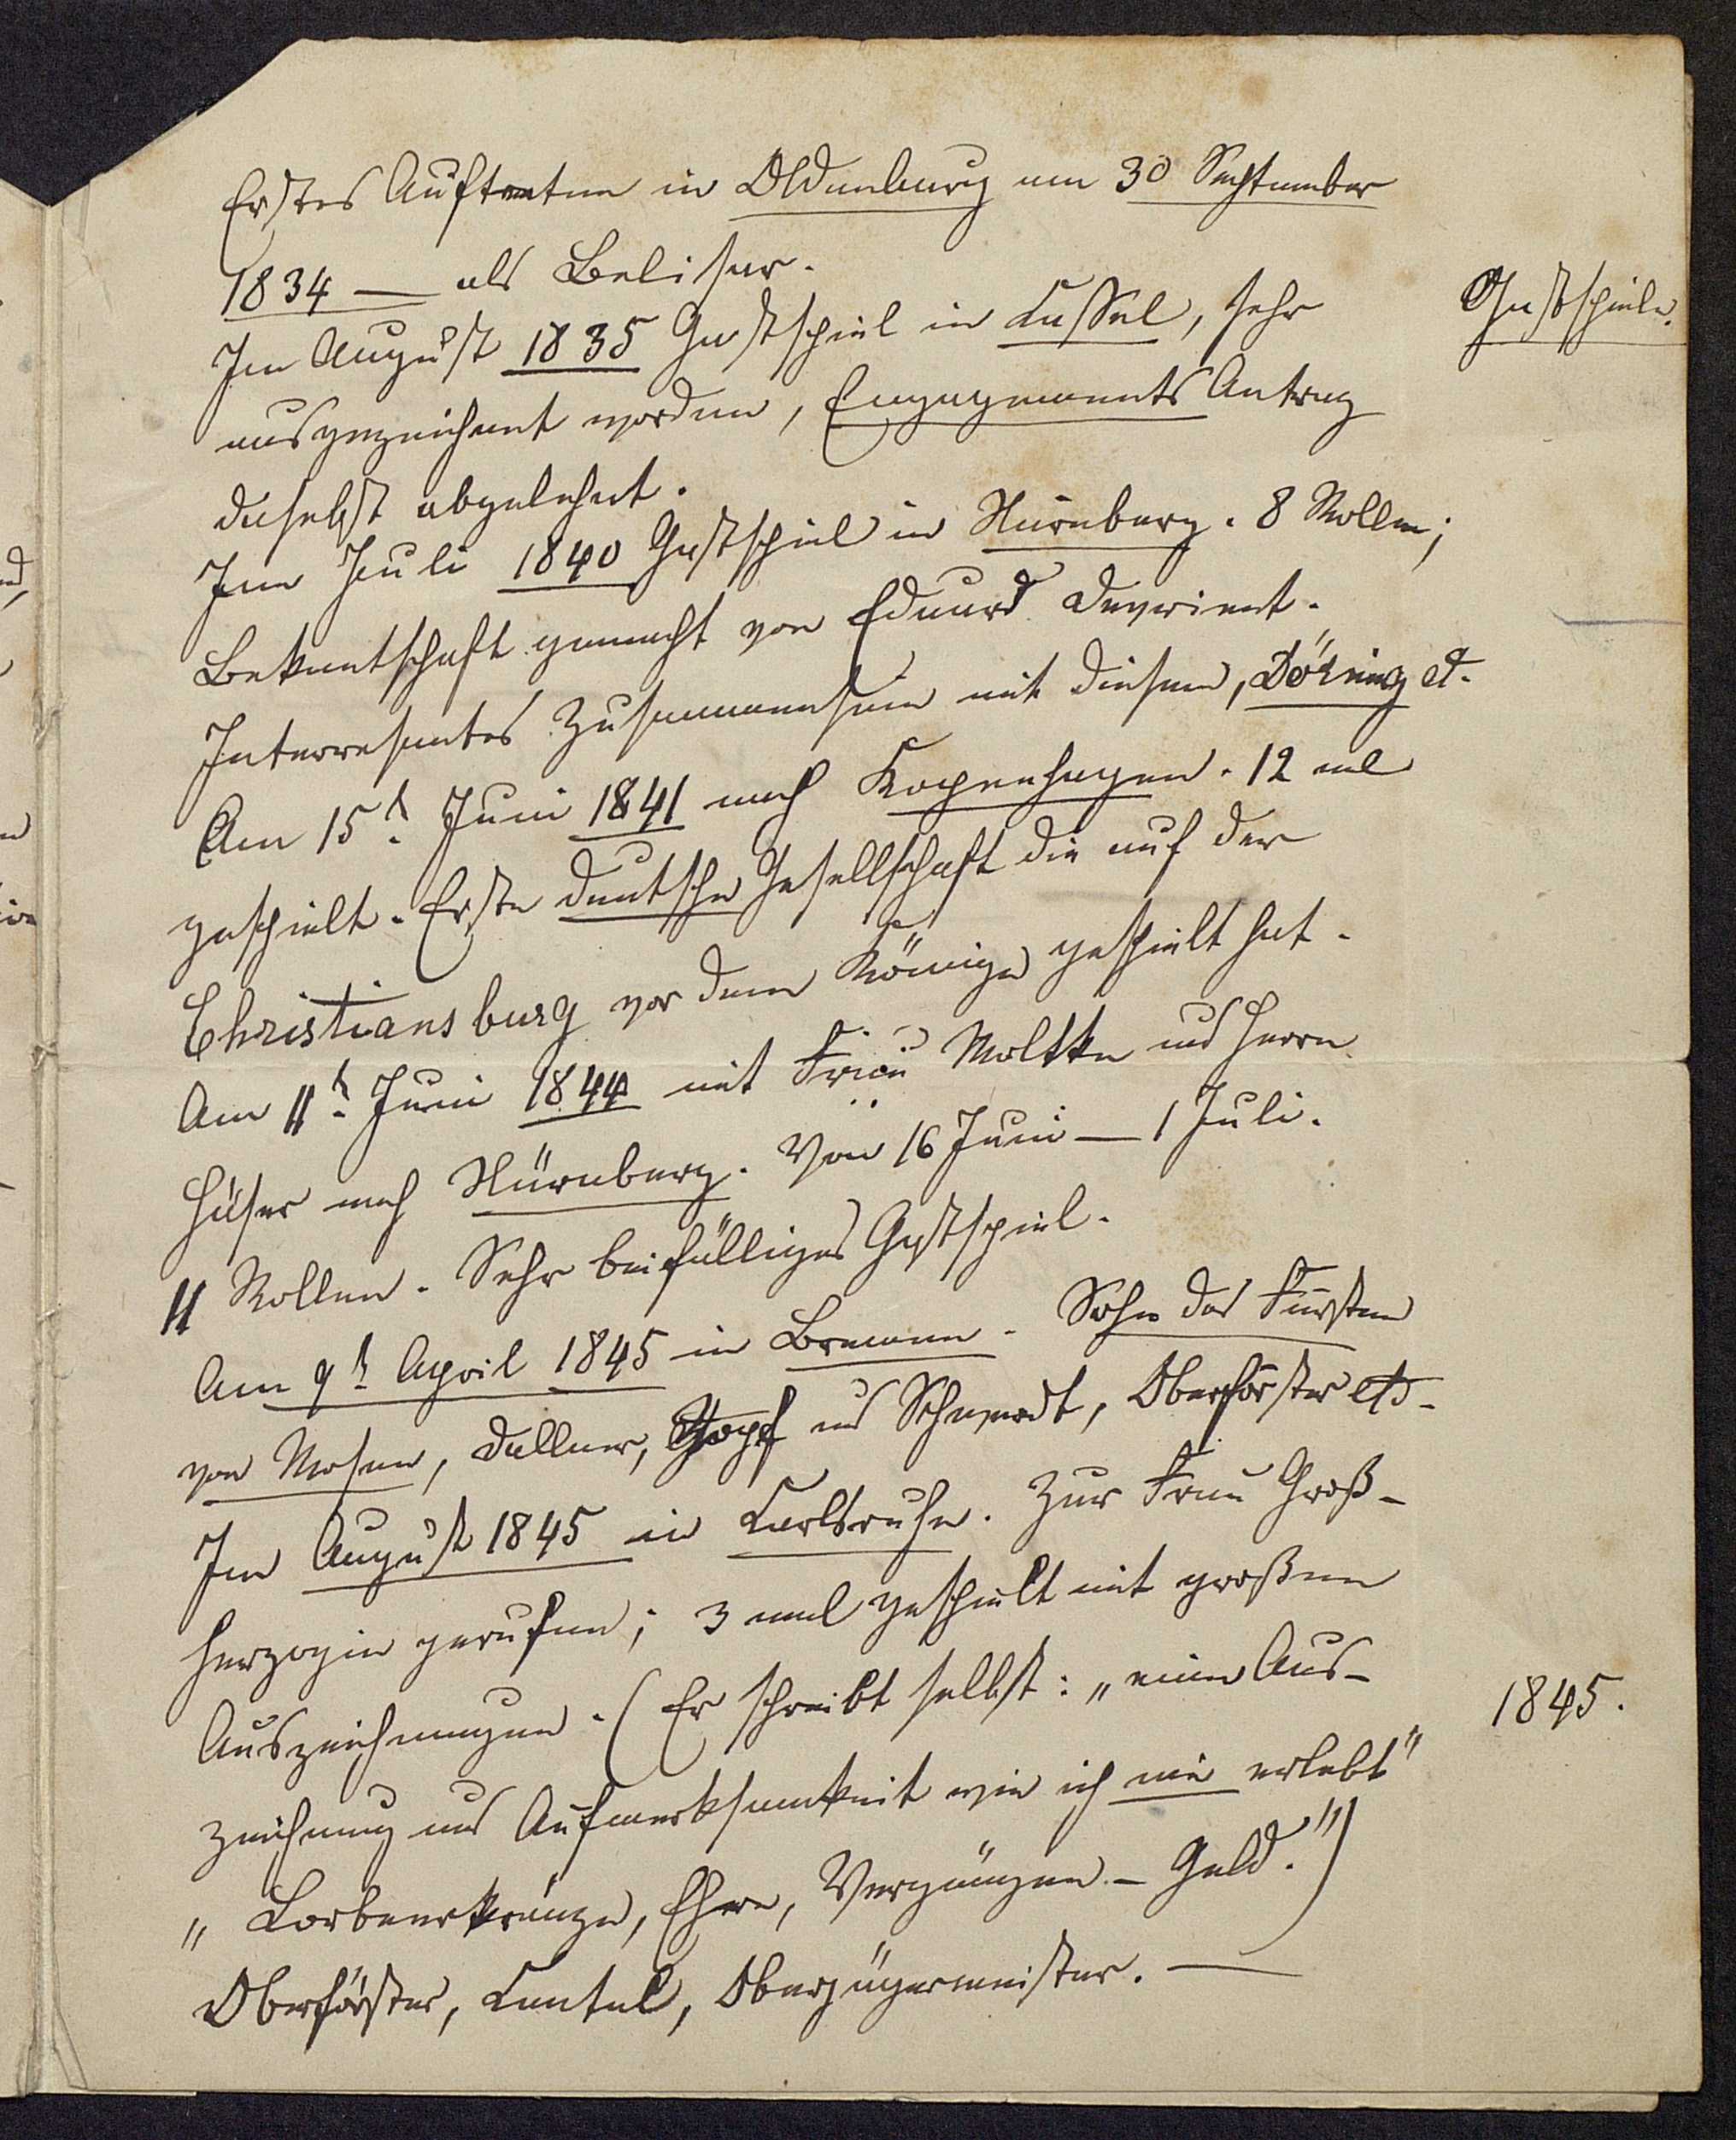 Erstes Auftreten in Oldenburg am 30 September
1834 — als Belisar.
Im August 1835 Gastspiel in Cassel, sehr
Gastspiele.
ausgezeichnet worden, Engagements Antrag
daselbst abgelehnt.
Im Juli 1840 Gastspiel in Nürnberg. 8 Rollen;
Bekantschaft gemacht von Eduard Devrient.
Interresantes Zusammensein mit diesem, Döring et.
Am 15t. Juni 1841 nach Kopenhagen. 12 mal
gespielt. Erste deutsche Gesellschaft die auf der
Christiansburg vor dem Könige gespielt hat.
Am 11t. Juni 1844 mit Frau Moltke und Herrn
Häser nach Nürnberg. Von 16 Juni — 1 Juli.
11 Rollen. Sehr beifälliges Gastspiel.
Am 9t. April 1845 in Bremen. Sohn des Fürsten
von Mosen, Dallner, Zopf und Schwerdt, Oberförster etc.
Im August 1845 in Carlsruhe. Zur Frau Groß-
herzogin gerufen; 3 mal gespielt mit großen
Auszeichnungen. (Er schreibt selbst: „eine Aus-
1845.
zeichnung und Aufmerksamkeit wie ich nie erlebt"
„Lorbeerkränze, Ehre, Vergnügen – Geld.")
Oberförster, Cantal, Oberjägermeister. —